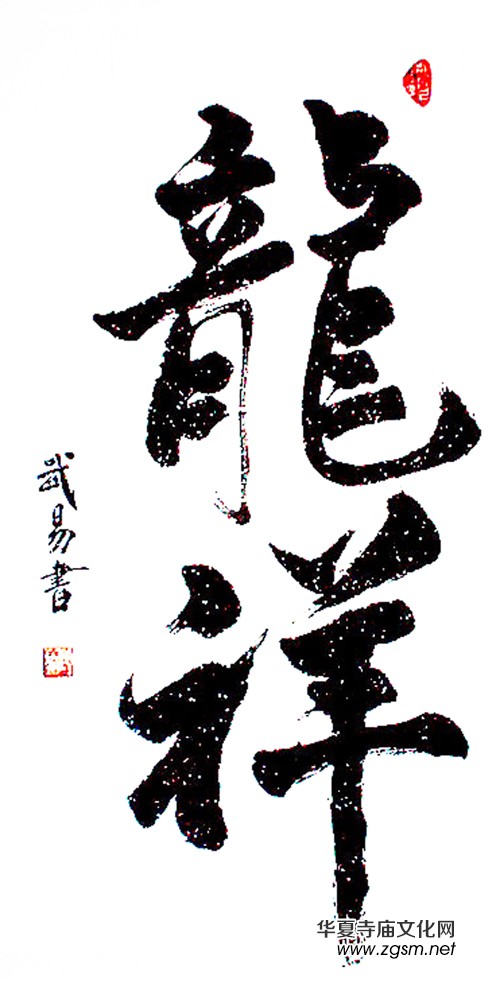 龍祥
武易書
华夏寺庙文化网
www.zgsm.net